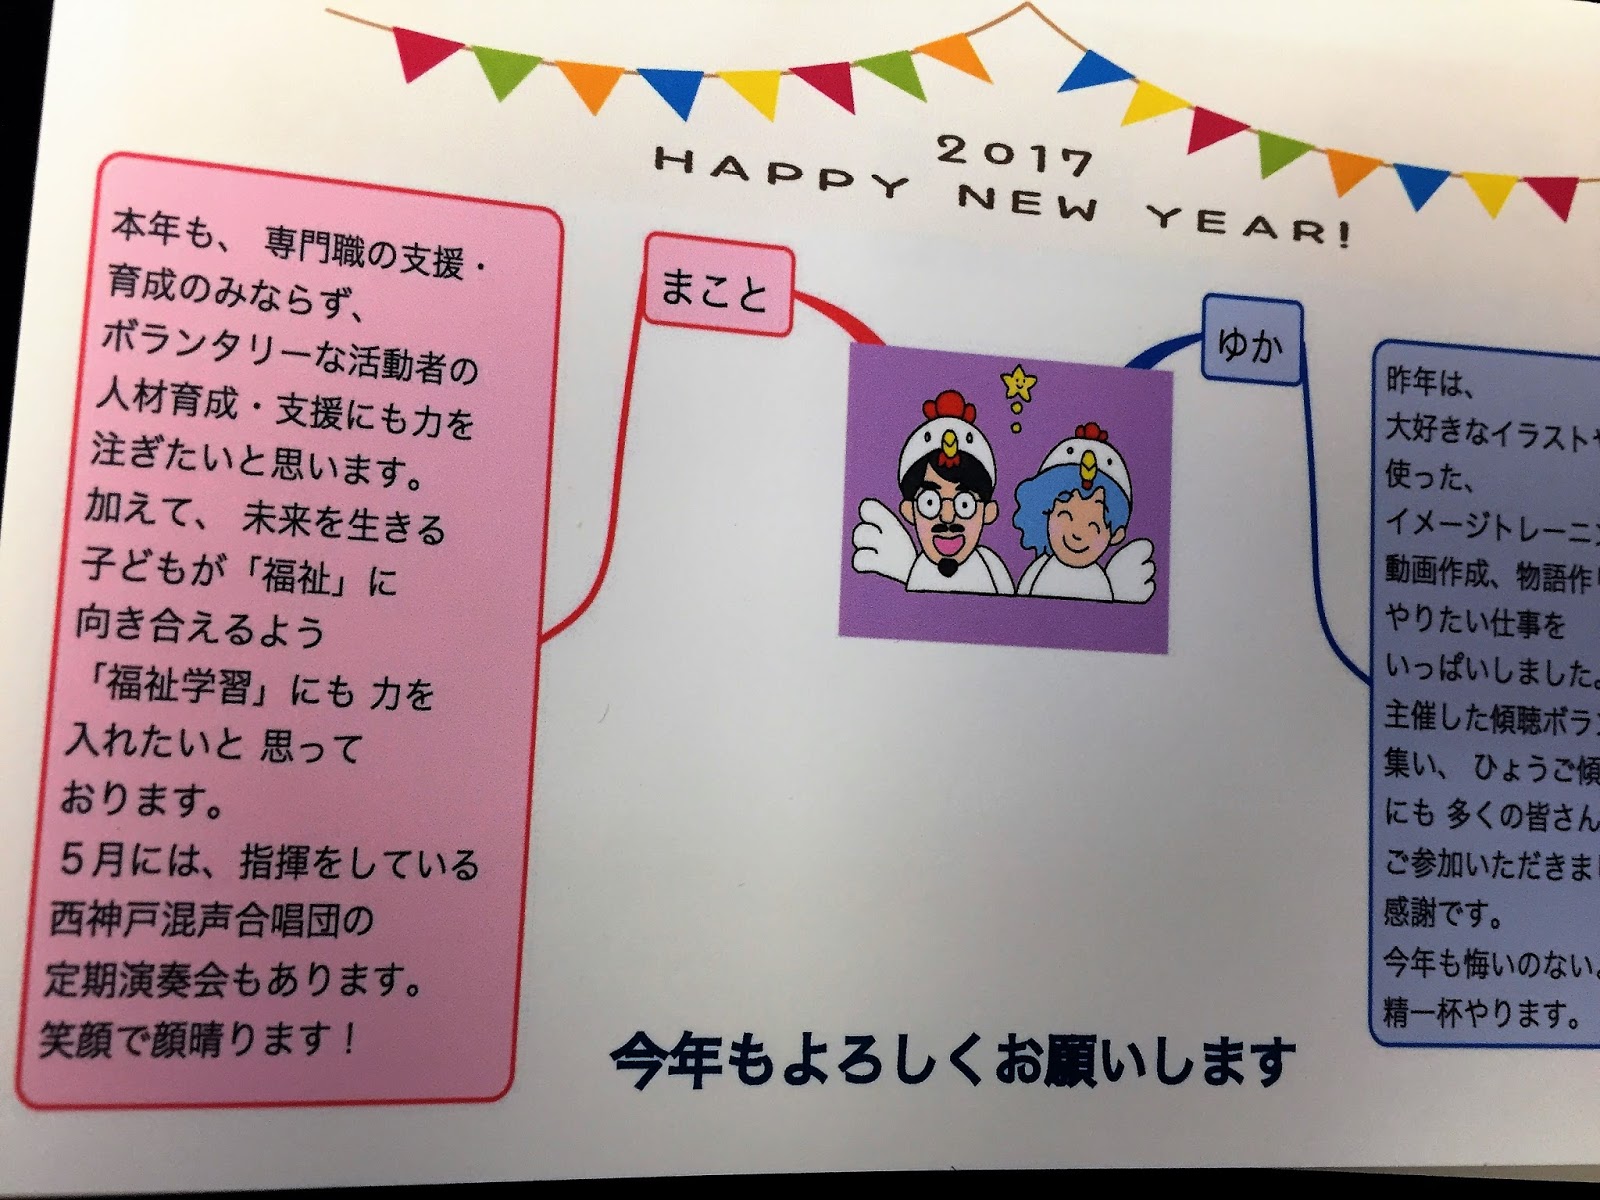 2017
HAPPY NEW YEAR!
まこと
本年も、 専門職の支援・
育成のみならず、
ボランタリーな活動者の
人材育成・支援にも力を
注ぎたいと思います。
加えて、 未来を生きる
子どもが「福祉」に
向き合えるよう
「福祉学習」にも 力を
入れたいと 思って
おります。
５月には、指揮をしている
西神戸混声合唱団の
定期演奏会もあります。
笑顔で顔晴ります！
ゆか
昨年は、
大好きなイラスト
使った、
イメージトレーニン
動画作成、物語作り
やりたい仕事を
いっぱいしました。
主催した傾聴ボラン
集い、 ひょうご傾
にも 多くの皆さん
ご参加いただきまし
感謝です。
今年も悔いのない
精一杯やります。
今年もよろしくお願いします